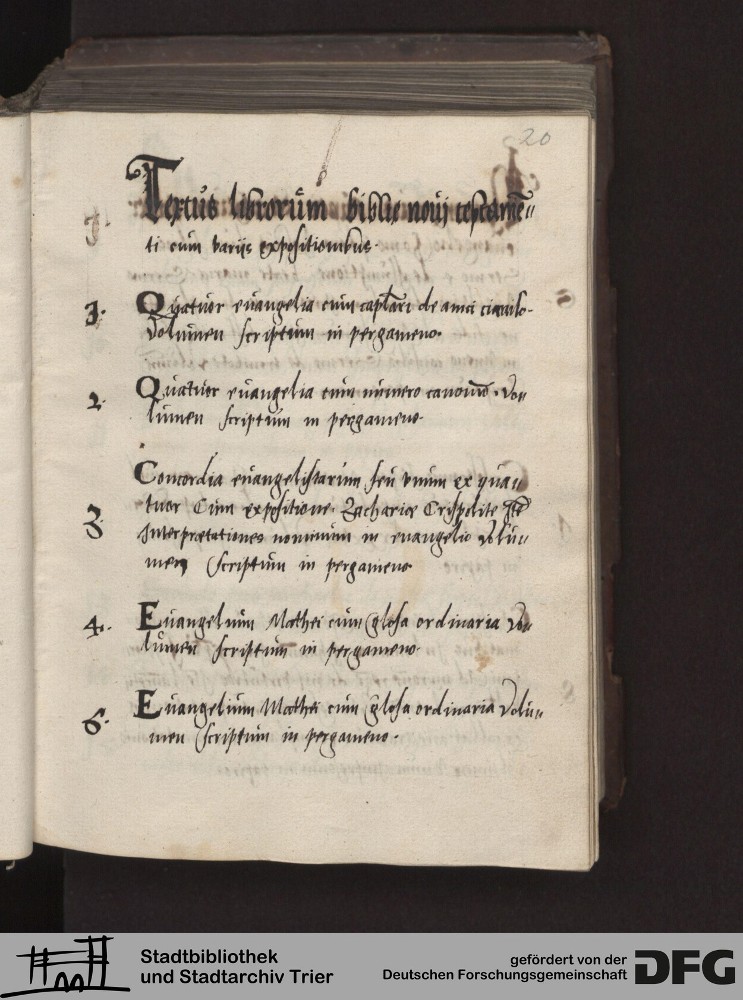 20
Textus librorum biblie noui testamen„
ti cum varijs expositionibus.
1. Quatuor euangelia cum
Volumen scriptum in pergameno.
2. Quatuor euangelia cum numero canonum. Vo„
lumen scriptum in pergameno.
Concordia euangelistarum seu vnum ex qua„
tuor Cum expositione. Zachariæ Crispolite
3. Interpretationes nominum in euangelio Volu„
men scriptum in pergameno
4. Euangelium Mathei cum glosa ordinaria Vo„
lumen scriptum in pergameno.
6. Euangelium Mathei cum glosa ordinaria Volu„
men scriptum in pergameno.
Stadtbibliothek
und Stadtarchiv Trier
gefördert von der
Deutschen Forschungsgemeinschaft
DFG